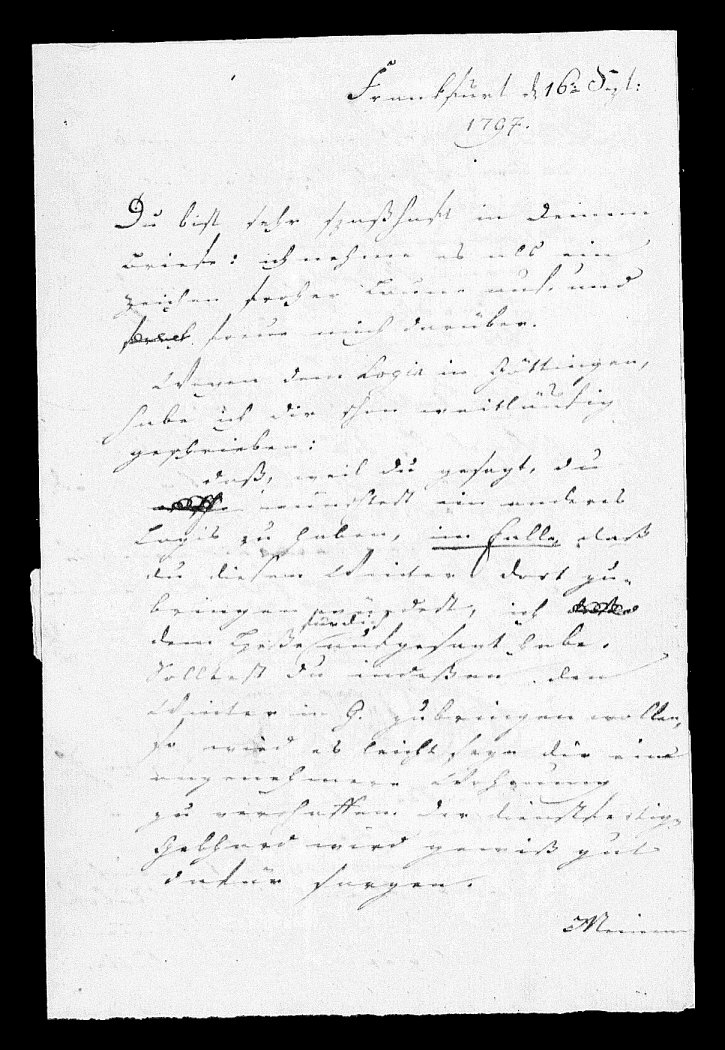 Frankfurt d 16n Sept:
1797.
Du bist sehr spaßhaft in Deinem
Briefe: ich nehme es als ein
Zeichen froher Laune auf, und
freue mich darüber.
Wegen dem Logis in Göttingen,
habe ich dir schon weitläufig
geschrieben:
daß, weil du gesagt, du
wünschtest ein anderes
Logis zu haben, im Falle, daß
du diesen Winter dort zu-
bringen würdest, ich
dem für dich aufgesagt habe.
Solltest Du indeßen den
Winter in G. zubringen wollen,
so wird es leicht seyn dir eine
angenehmere Wohnung
zu verschaffen. Der dienstfertige
Gebhard wird gewiß gut
dafür sorgen.